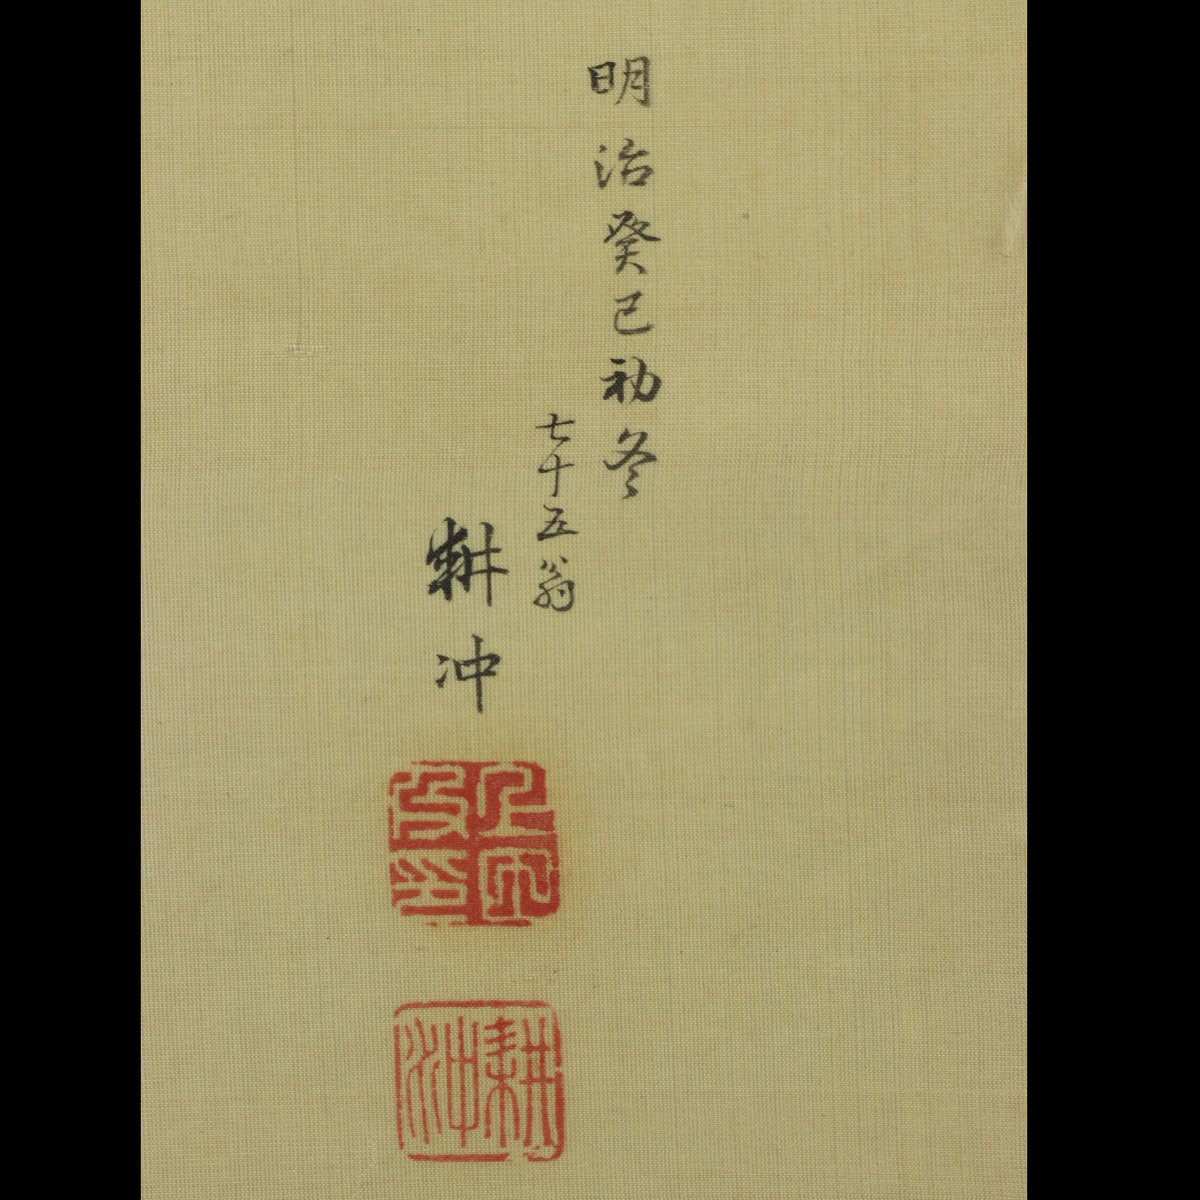 明治癸巳初冬
七十五翁
耕冲
耕沖